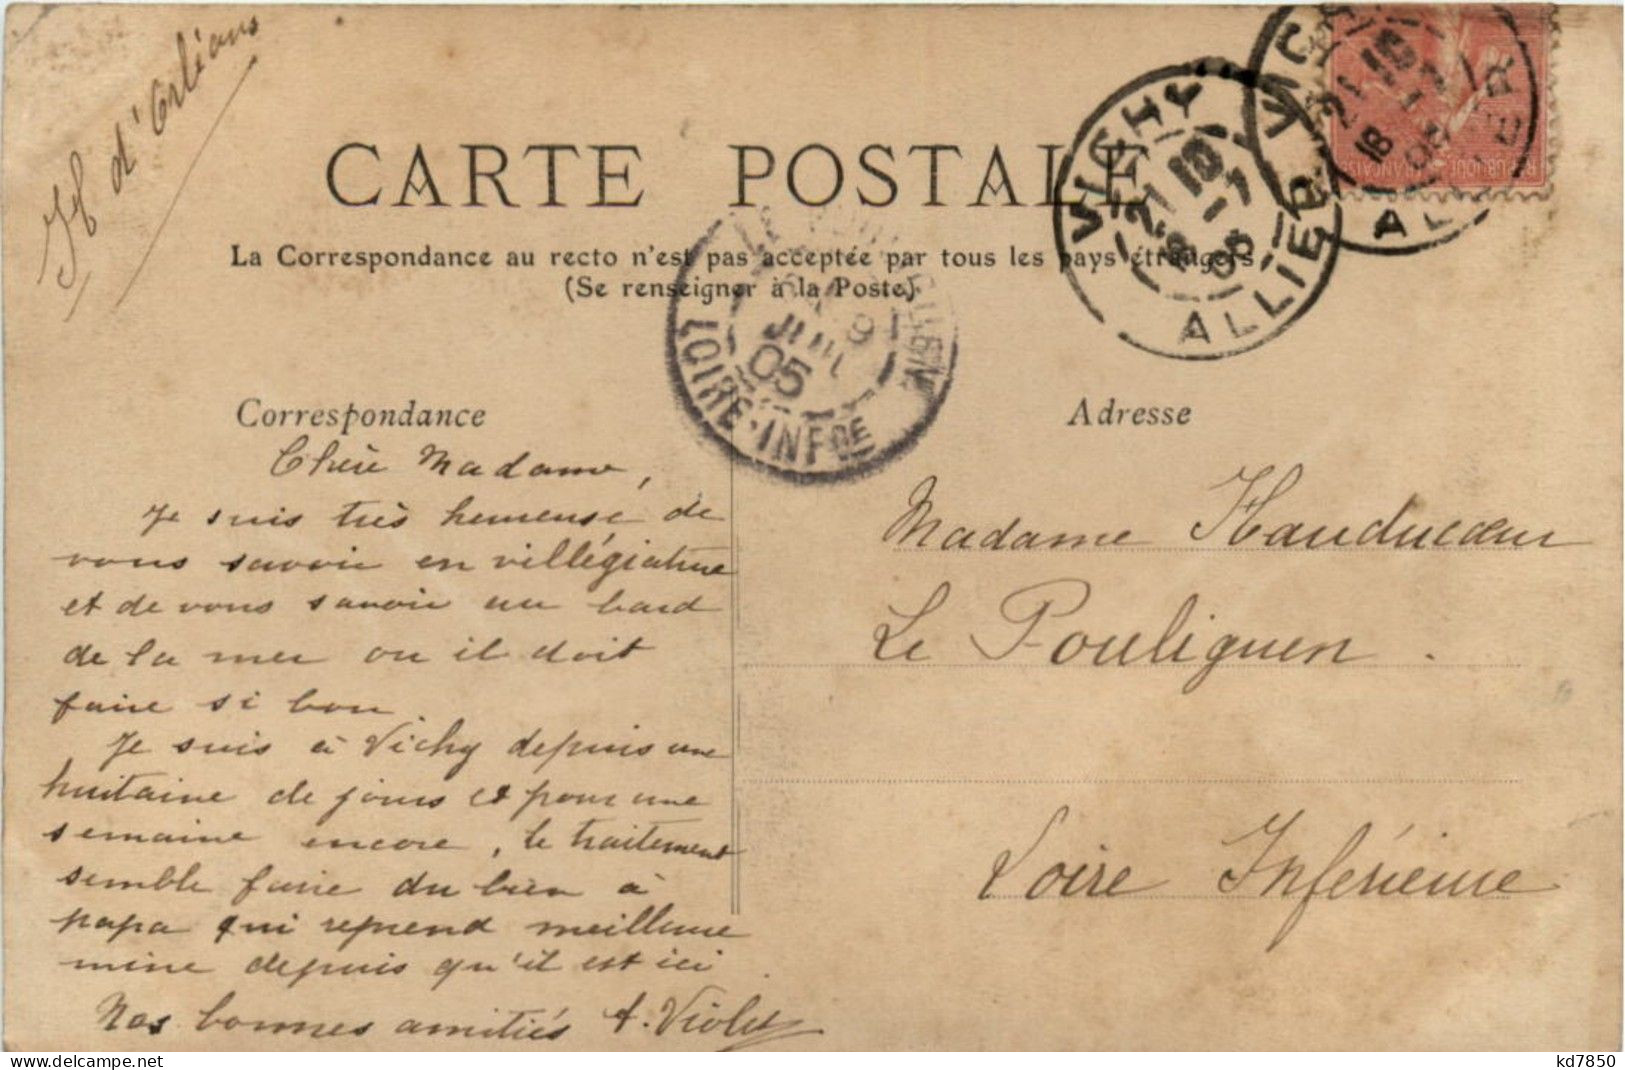 H d'Orléans
CARTE POSTALE
La Correspondance au recto n'est pas acceptée par tous les pays étrangers
(Se renseigner à la Poste)
VICHY
21 18
18 - 7
05
ALLIER
VICHY
21 18
18 - 7
05
ALLIER
REPUBLIQUE FRANÇAISE
LE POULIGUEN
9
JUIL
05
LOIRE-INFRE
Correspondance
Chère Madame,
Je suis très heureuse de
vous savoir en villégiature
et de vous savoir au bord
de la mer ou il doit
faire si bon
Je suis à Vichy depuis une
huitaine de jours et pour une
semaine encore, le traitement
semble faire du bien à
papa qui reprend meilleure
mine depuis qu'il est ici.
Nos bonnes amitiés A. Violet
Adresse
Madame Hauducœur
Le Pouliguen.
Loire Inférieure
delcampe.net
kd7850